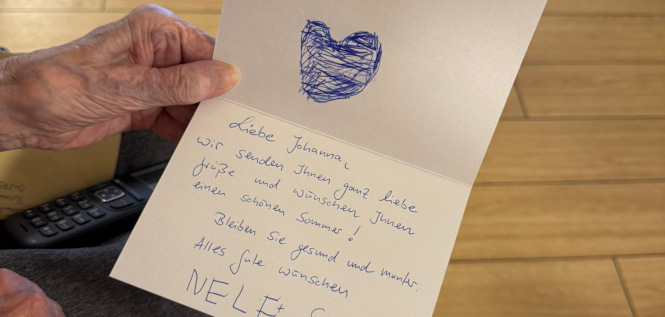 Liebe Johanna,
wir senden Ihnen ganz liebe
Grüße und wünschen Ihnen
einen schönen Sommer!
Bleiben Sie gesund und munter.
Alles Gute wünschen
NELE+